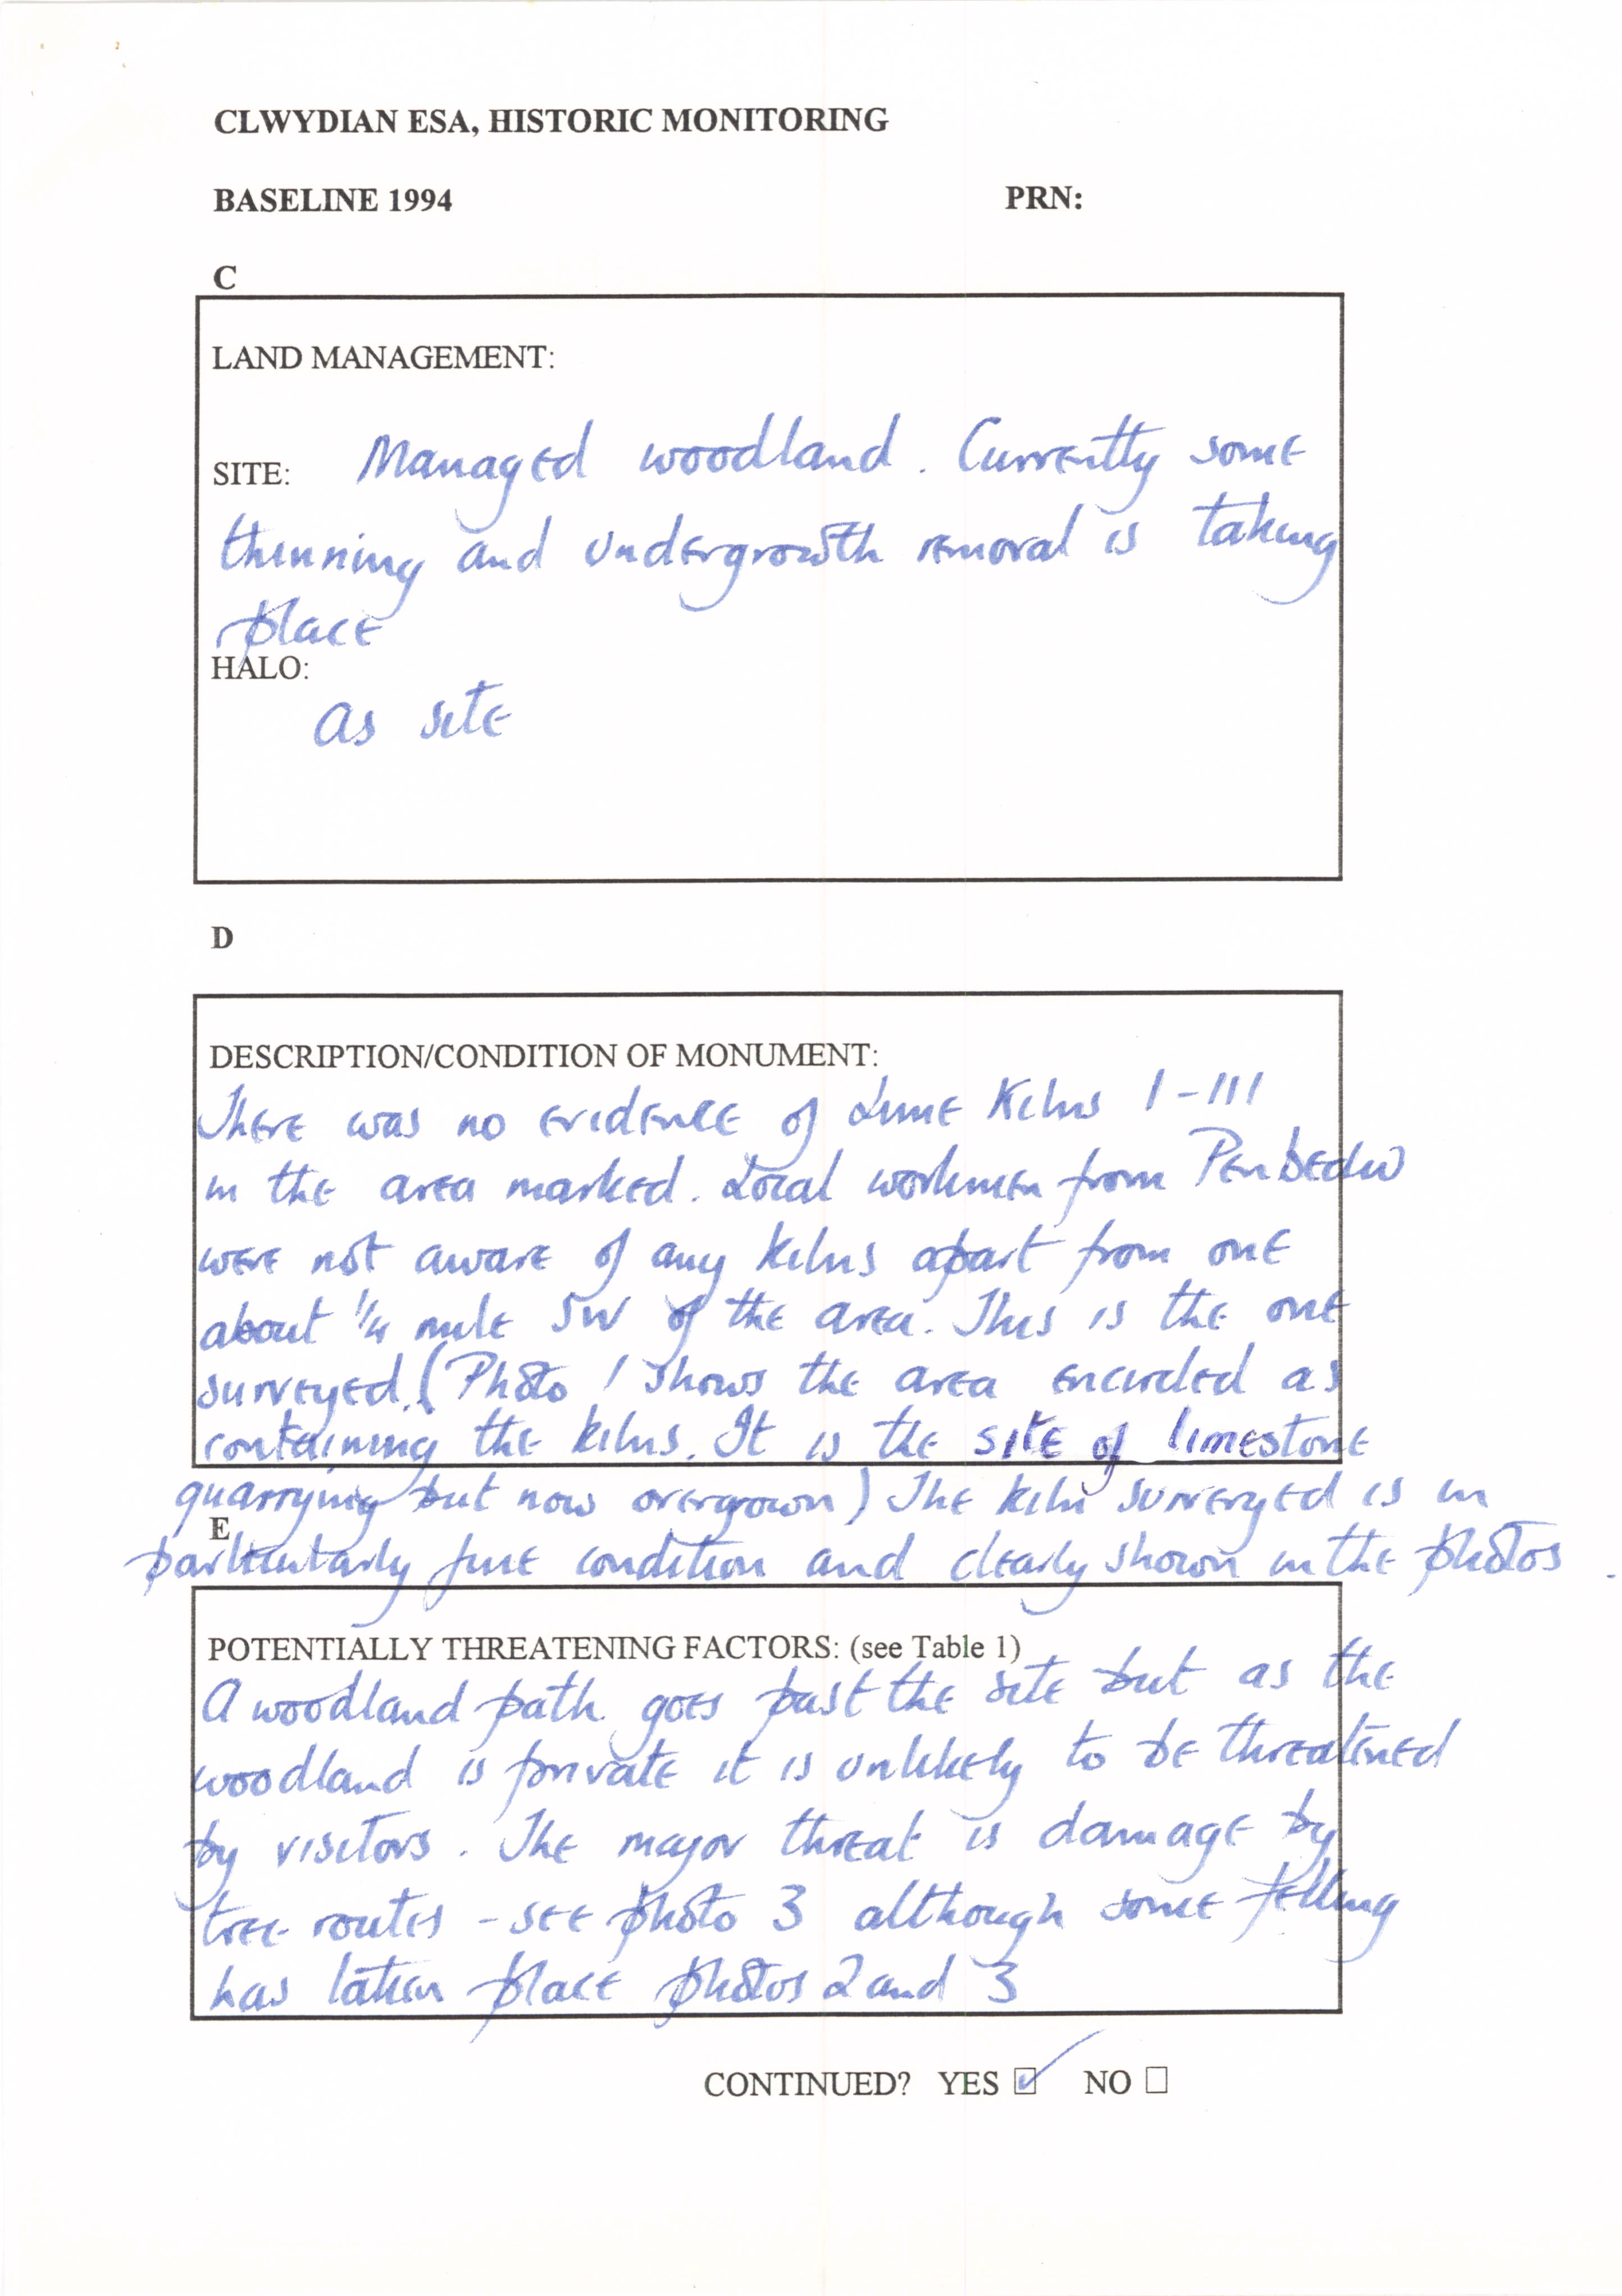 CLWYDIAN ESA, HISTORIC MONITORING
BASELINE 1994 PRN:
C
LAND MANAGEMENT:
SITE: Managed woodland. Currently some
thinning and undergrowth removal is taking
place
HALO:
as site
D
DESCRIPTION/CONDITION OF MONUMENT:
There was no evidence of Lime Kilns I-III
in the area marked. Local workmen from Penbedw
were not aware of any kilns apart from one
about 1/4 mile SW of the area. This is the one
surveyed. (Photo 1 shows the area encircled as
containing the kilns. It is the site of limestone
quarrying but now overgrown) The kiln surveyed is in
E
particularly fine condition and clearly shown in the photos.
POTENTIALLY THREATENING FACTORS: (see Table 1)
A woodland path goes past the site but as the
woodland is private it is unlikely to be threatened
by visitors. The major threat is damage by
tree routes - see photo 3 although some felling
has taken place photos 2 and 3
CONTINUED? YES ☑ NO ☐